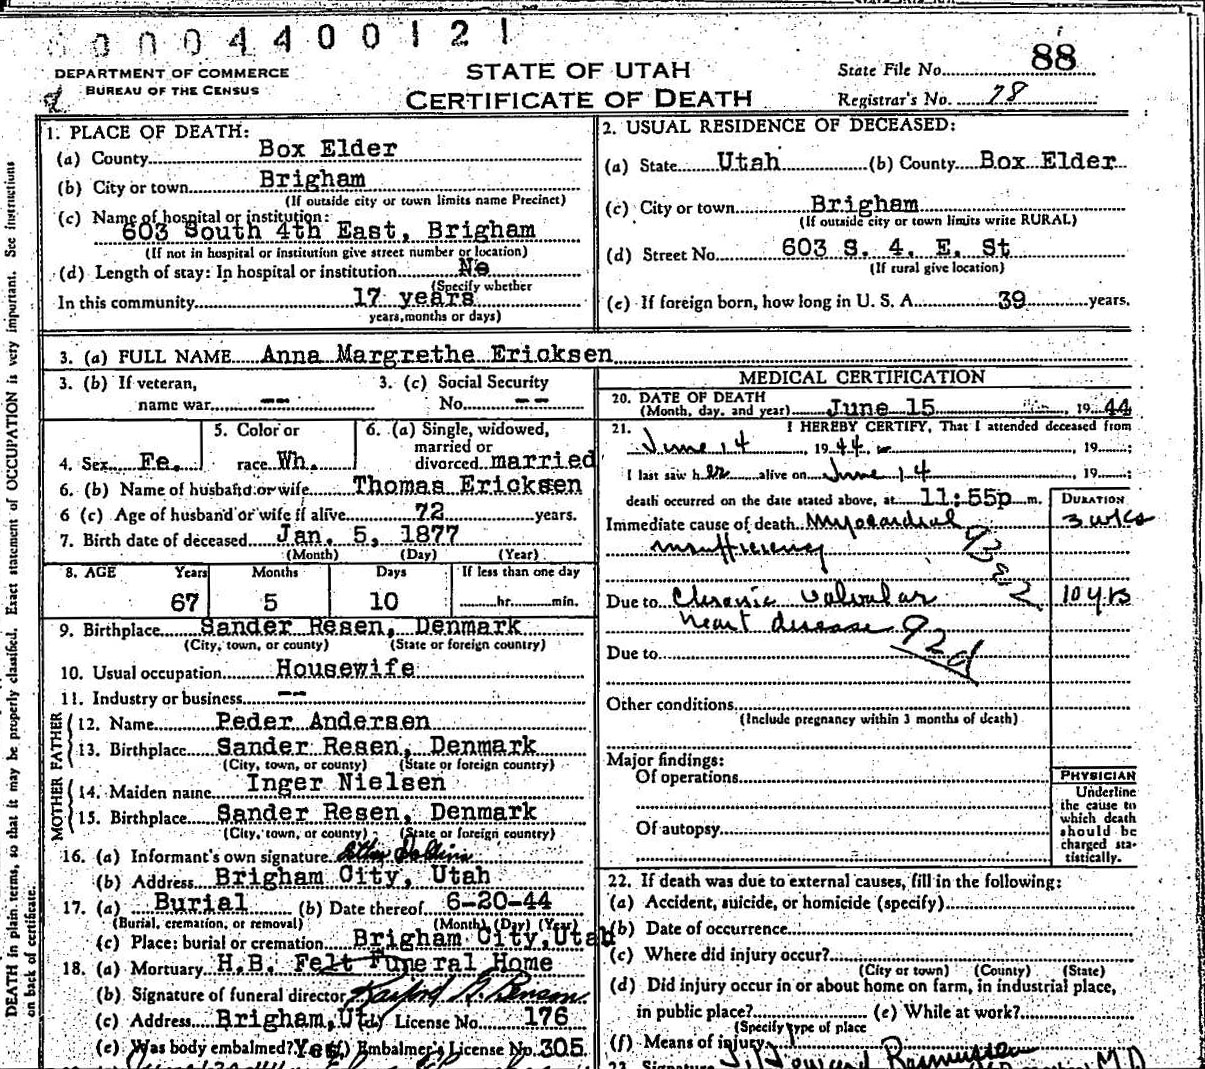 00004400121
DEPARTMENT OF COMMERCE
BUREAU OF THE CENSUS
STATE OF UTAH
CERTIFICATE OF DEATH
State File No. 88
Registrar's No. 78
1. PLACE OF DEATH:
(a) County Box Elder
(b) City or town Brigham
(If outside city or town limits name Precinct)
(c) Name of hospital or institution:
603 South 4th East, Brigham
(If not in hospital or institution give street number or location)
(d) Length of stay: In hospital or institution No
(Specify whether
In this community 17 years
years, months or days)
2. USUAL RESIDENCE OF DECEASED:
(a) State Utah (b) County Box Elder
(c) City or town Brigham
(If outside city or town limits write RURAL)
(d) Street No. 603 S. 4. E. St
(If rural give location)
(e) If foreign born, how long in U. S. A. 39 years.
3. (a) FULL NAME Anna Margrethe Ericksen
3. (b) If veteran,
name war --
3. (c) Social Security
No. --
4. Sex Fe.
5. Color or
race Wh.
6. (a) Single, widowed,
married or
divorced married
6. (b) Name of husband or wife Thomas Ericksen
6 (c) Age of husband or wife if alive 72 years.
7. Birth date of deceased Jan. 5, 1877
(Month) (Day) (Year)
8. AGE Years Months Days If less than one day
67 5 10 hr. min.
9. Birthplace Sander Resen, Denmark
(City, town, or county) (State or foreign country)
10. Usual occupation Housewife
11. Industry or business --
FATHER
12. Name Peder Andersen
13. Birthplace Sander Resen, Denmark
(City, town, or county) (State or foreign country)
MOTHER
14. Maiden name Inger Nielsen
15. Birthplace Sander Resen, Denmark
(City, town, or county) (State or foreign country)
16. (a) Informant's own signature
(b) Address Brigham City, Utah
17. (a) Burial (b) Date thereof 6-20-44
(Burial, cremation, or removal) (Month) (Day) (Year)
(c) Place: burial or cremation Brigham City, Utah
18. (a) Mortuary H.B. Felt Funeral Home
(b) Signature of funeral director
(c) Address Brigham, Ut (d) License No. 176
(e) Was body embalmed? Yes (f) Embalmer's License No. 305
MEDICAL CERTIFICATION
20. DATE OF DEATH
(Month, day, and year) June 15, 19 44
21. I HEREBY CERTIFY, That I attended deceased from
June 14, 19 44, 19 ;
I last saw her alive on June 14 19 ;
death occurred on the date stated above, at 11:55p m.
DURATION
Immediate cause of death Myocardial 3 wks
insufficiency
Due to Chronic valvular 10 yrs
heart disease 92d
Due to
Other conditions
(Include pregnancy within 3 months of death)
Major findings:
Of operations
Of autopsy
PHYSICIAN
Underline
the cause to
which death
should be
charged sta-
tistically.
22. If death was due to external causes, fill in the following:
(a) Accident, suicide, or homicide (specify)
(b) Date of occurrence
(c) Where did injury occur?
(City or town) (County) (State)
(d) Did injury occur in or about home on farm, in industrial place,
in public place? (e) While at work?
(Specify type of place
(f) Means of injury
23. Signature J. Howard Rasmussen M.D.
DEATH in plain terms, so that it may be properly classified. Exact statement of OCCUPATION is very important. See instructions
on back of certificate.